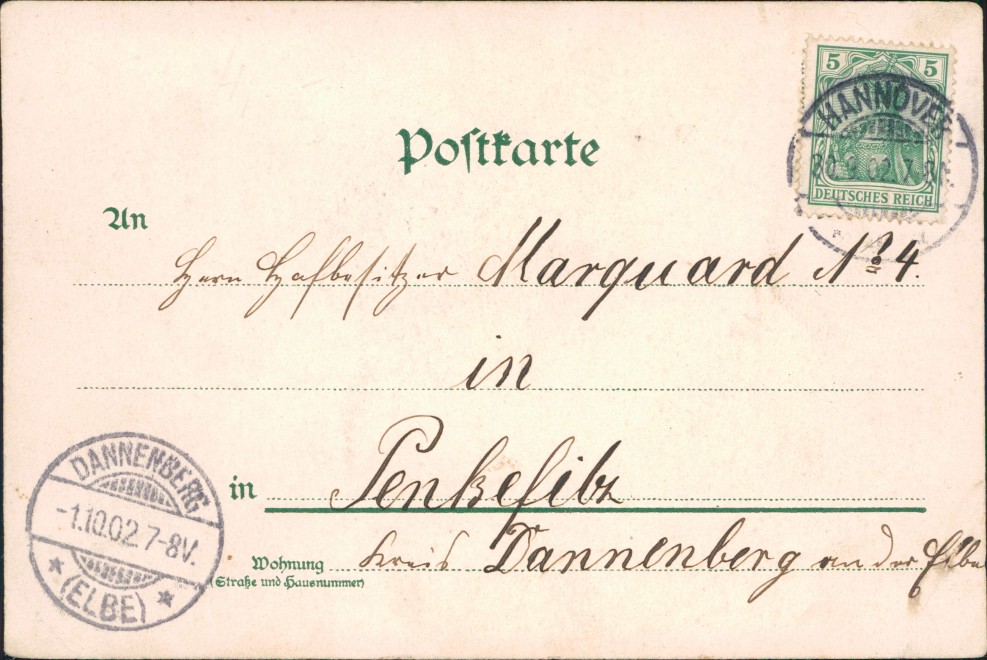 5 5
DEUTSCHES REICH
HANNOVER
30.9.02.7
Postkarte
An
Herrn Hofbesitzer Marquard No 4.
in
in Penkefitz
Wohnung
(Straße und Hausnummer)
Kreis Dannenberg an der Elbe
DANNENBERG
-1.10.02.7-8V.
(ELBE)